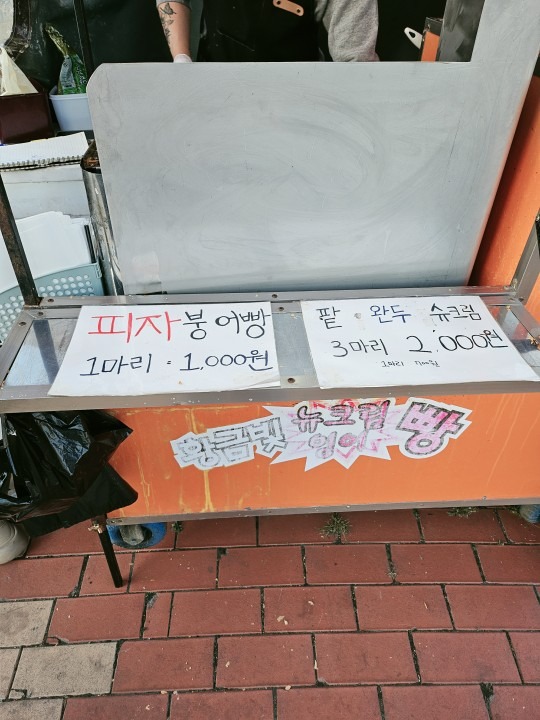 피자붕어빵
1마리 : 1,000원
팥 · 완두 슈크림
3마리 2,000원
1마리 700원
황금빛
뉴크림
잉어
빵